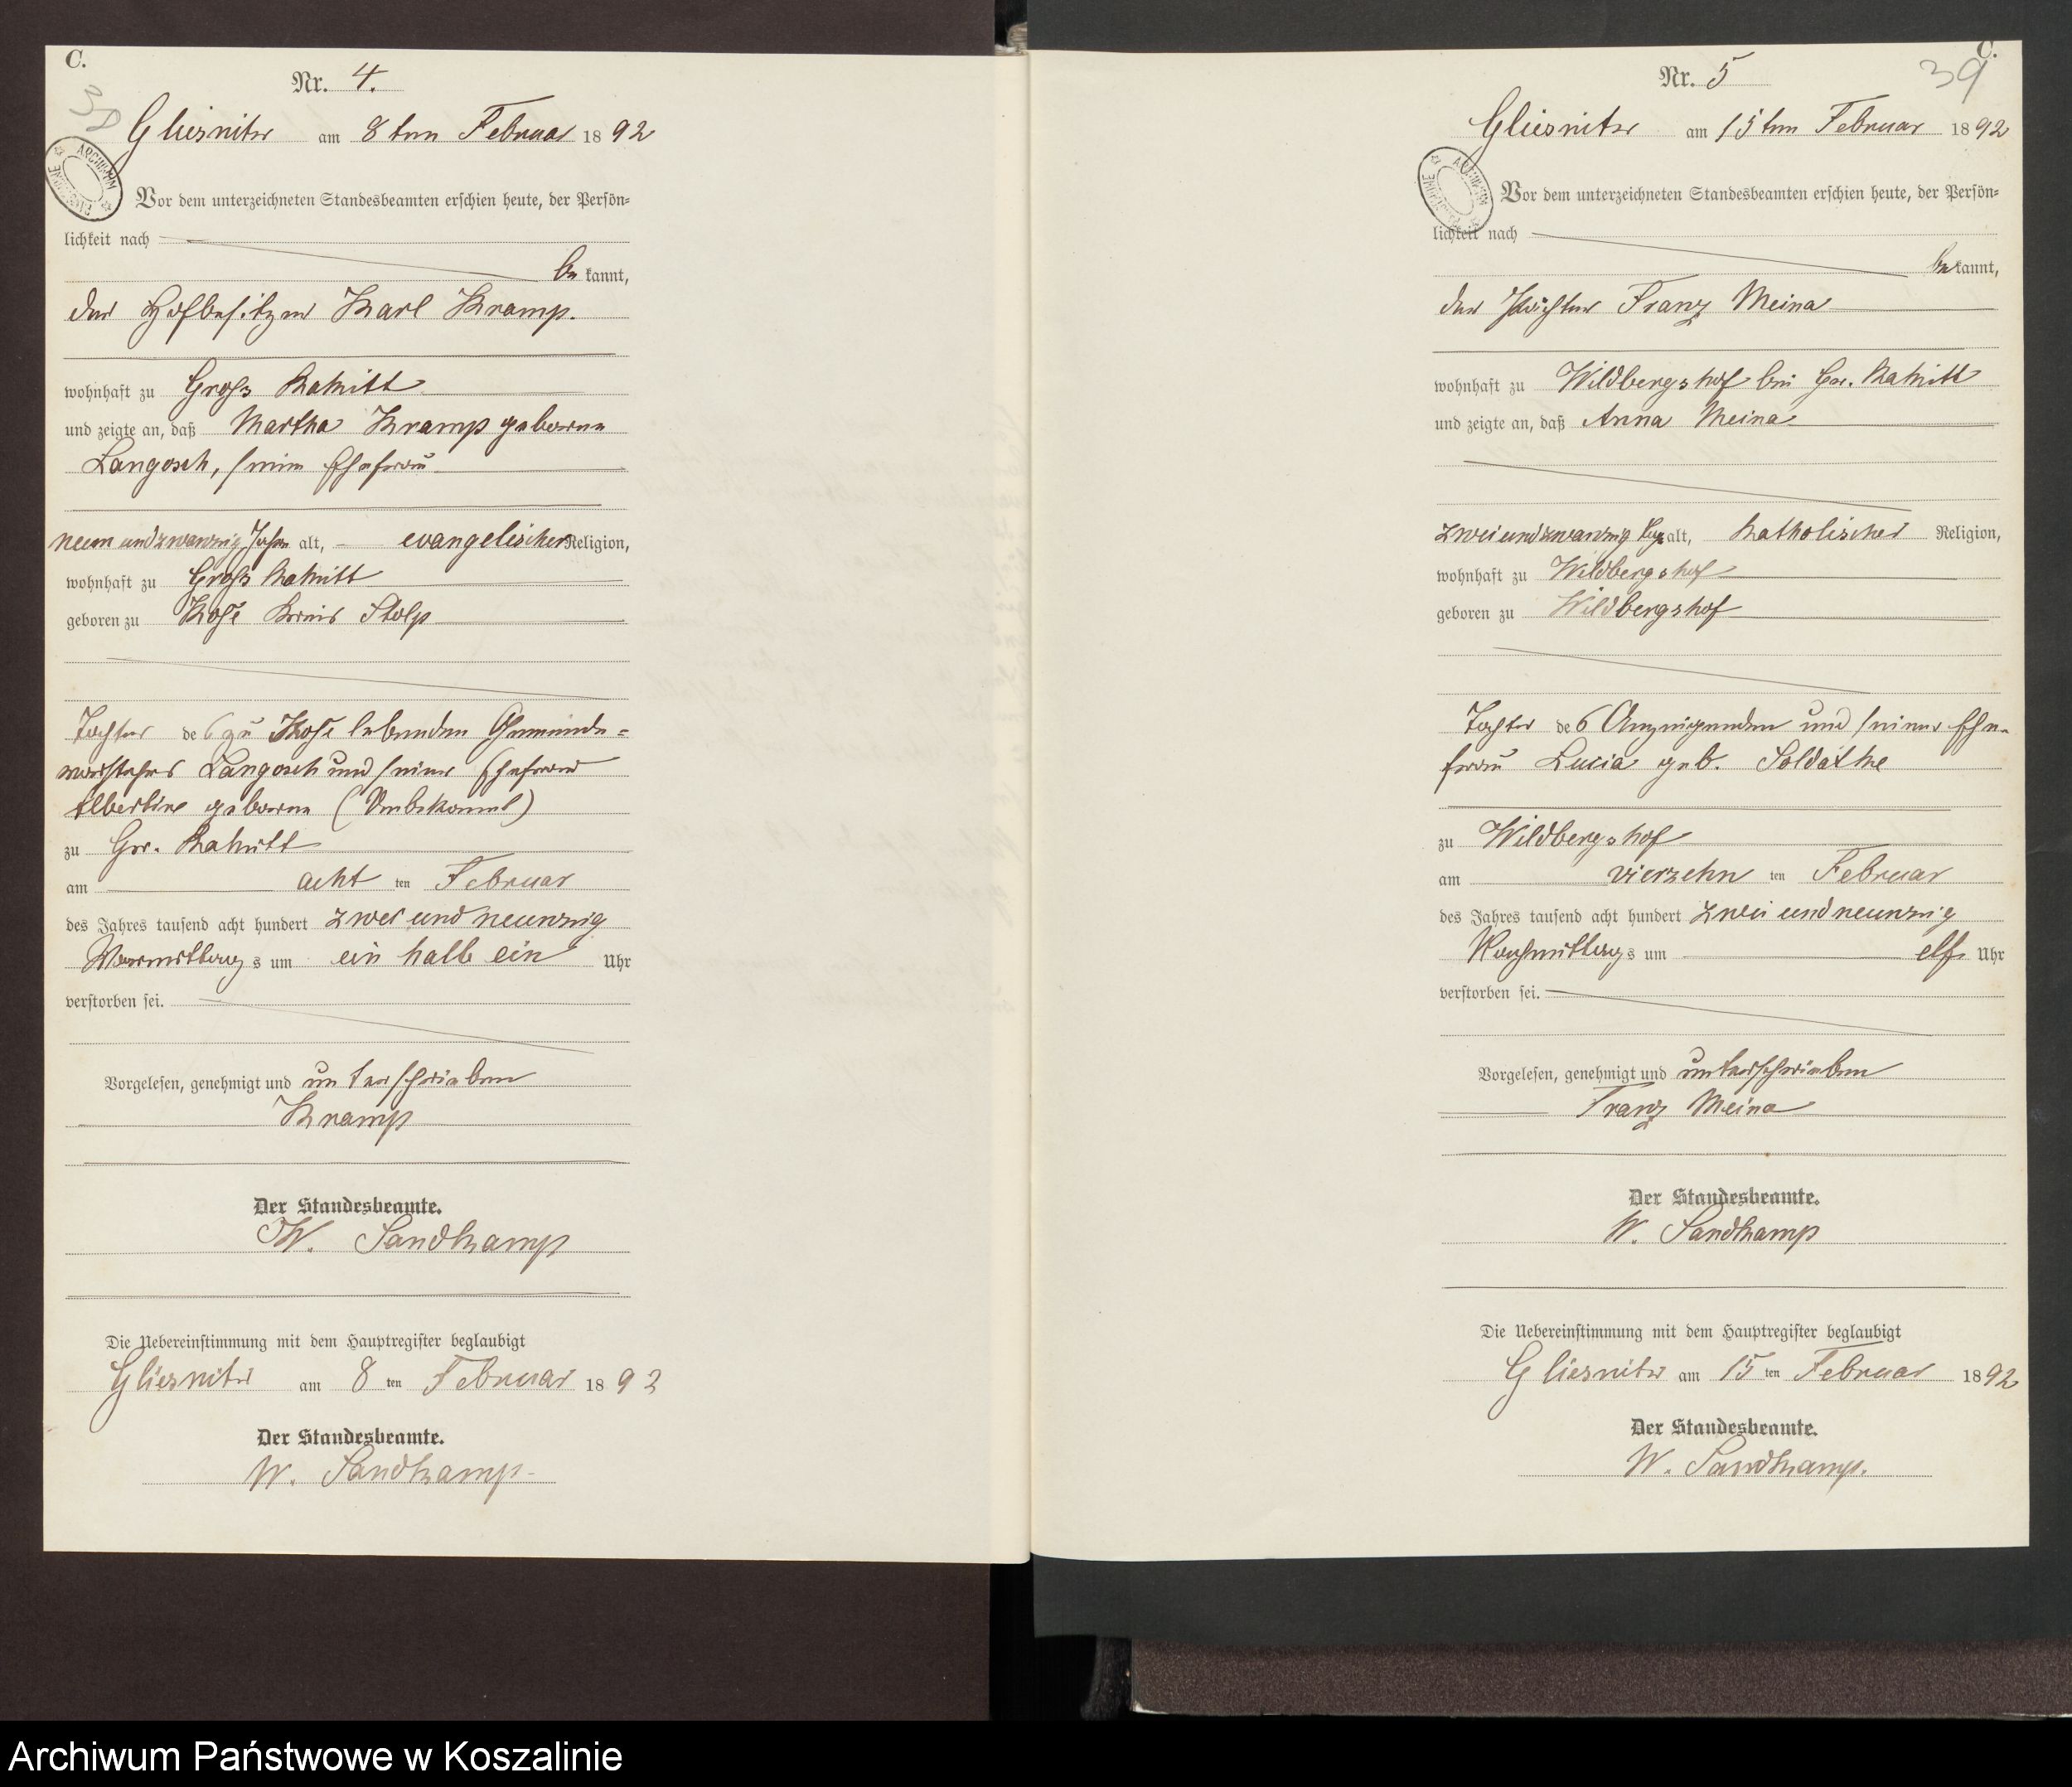 C.
38
Nr. 4.
Gliesnitz am 8ten Februar 1892
ARCHIWUM PAŃSTWOWE
Vor dem unterzeichneten Standesbeamten erschien heute, der Persön-
lichkeit nach
be kannt,
der Hofbesitzer Karl Kramp.
wohnhaft zu Groß Rakitt
und zeigte an, daß Martha Kramp geborene
Langosch, seine Ehefrau
neunundzwanzig Jahre alt, evangelischer Religion,
wohnhaft zu Groß Rakitt
geboren zu Kose Kreis Stolp
Tochter des zu Kose lebenden Gemeinde-
vorstehers Langosch und seiner Ehefrau
Albertine geborene (Unbekannt)
zu Gr. Rakitt
am acht ten Februar
des Jahres tausend acht hundert zwei und neunzig
Vormittags um ein halb ein Uhr
verstorben sei.
Vorgelesen, genehmigt und unterschrieben
Kramp
Der Standesbeamte.
W. Sandkamp
Die Uebereinstimmung mit dem Hauptregister beglaubigt
Gliesnitz am 8 ten Februar 1892
Der Standesbeamte.
W. Sandkamp.
C.
39
Nr. 5
Gliesnitz am 15ten Februar 1892
ARCHIWUM PAŃSTWOWE
Vor dem unterzeichneten Standesbeamten erschien heute, der Persön-
lichkeit nach
bekannt,
der Pächter Franz Meina
wohnhaft zu Wildbergshof bei Gr. Rakitt
und zeigte an, daß Anna Meina
zweiundzwanzig Tage alt, katholischer Religion,
wohnhaft zu Wildbergshof
geboren zu Wildbergshof
Tochter des Anzeigenden und seiner Ehe-
frau Lucia geb. Soldathe
zu Wildbergshof
am vierzehn ten Februar
des Jahres tausend acht hundert zwei und neunzig
Nachmittags um elf Uhr
verstorben sei.
Vorgelesen, genehmigt und unterschrieben
Franz Meina
Der Standesbeamte.
W. Sandkamp
Die Uebereinstimmung mit dem Hauptregister beglaubigt
Gliesnitz am 15 ten Februar 1892
Der Standesbeamte.
W. Sandkamp.
Archiwum Państwowe w Koszalinie